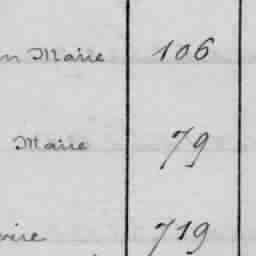 n Marie 106
Marie 79
oire 719